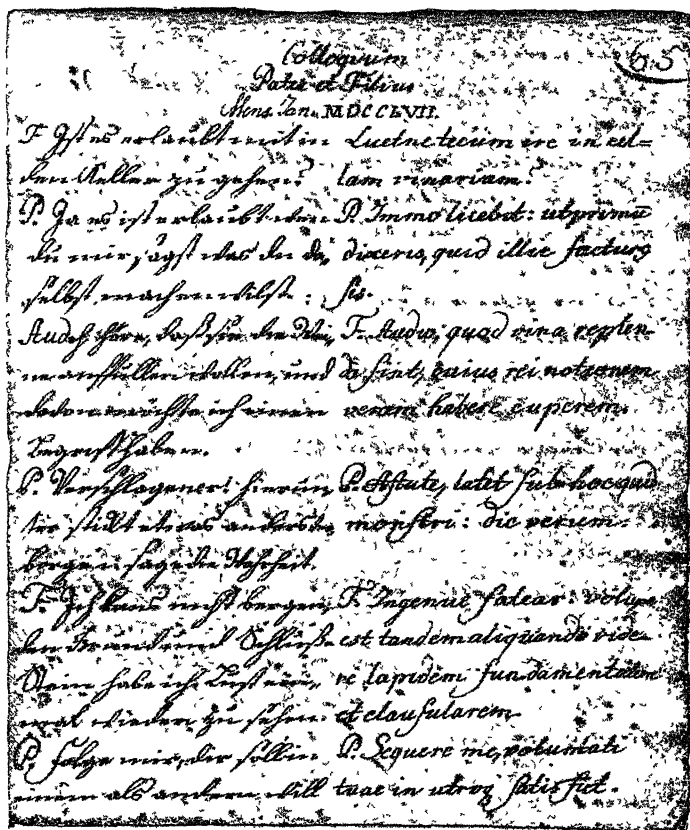 65
Colloquium
Pater et Filius
Mens. Jan. MDCCLVII.
F. Ist es erlaubt mit in
den Keller zu gehen?
P. Ja es ist erlaubt wen
du mir sagst was du da,
selbst machen wilst:
höre, daß sie die Wei,
ne auffüllen wollen, und
davon möchte ich einen
Begriff haben.
P. Verschlagener! hierun,
ter stickt etwas anders ver
borgen sage die Wahrheit.
F. Ich kans nicht bergen,
den Grund und Schluß
Stein habe ich Lust ein,
mal wieder zu sehen
P. Folge mir, dir soll in
einem als andern Will
Licetne tecum ire in cel=
lam vinariam?
P. Immo licebit: utprimū
dixeris, quid illic facturg
sis.
F. Audio, quod vina replen
da sint, cuius rei notionem
veram habere cuperem.
P. Astute, latet sub hoc quid
monstri: dic verum.
F. Ingenue fatear: volup
est tandem aliquando vide
re lapidem fundamentalem
et clausularem
P. Sequere me, voluntati
tuae in utroq satis fiet.